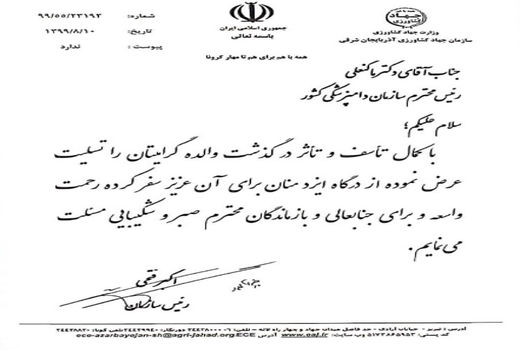 شماره: ۹۹/۵۵/۲۳۱۹۲
تاریخ: ۱۳۹۹/۸/۱۰
پیوست: ندارد
جمهوری اسلامی ایران
باسمه تعالی
همه با هم برای هم تا مهار کرونا
جهاد کشاورزی
وزارت جهاد کشاورزی
سازمان جهاد کشاورزی آذربایجان شرقی
جناب آقای دکتر باکنعلی
رئیس محترم سازمان دامپزشکی کشور
سلام علیکم؛
با کمال تأسف و تأثر درگذشت والده گرامیتان را تسلیت
عرض نموده از درگاه ایزد منان برای آن عزیز سفر کرده رحمت
واسعه و برای جنابعالی و بازماندگان محترم صبر و شکیبایی مسئلت
می نمایم.
اکبر فتحی
رئیس سازمان
آدرس: تبریز - خیابان آزادی - حد فاصل میدان جهاد و چهار راه لاله - تلفن:
کد پستی: وب سایت: www.eaj.ir
ece-azarbayejan-sh@agri-jahad.org